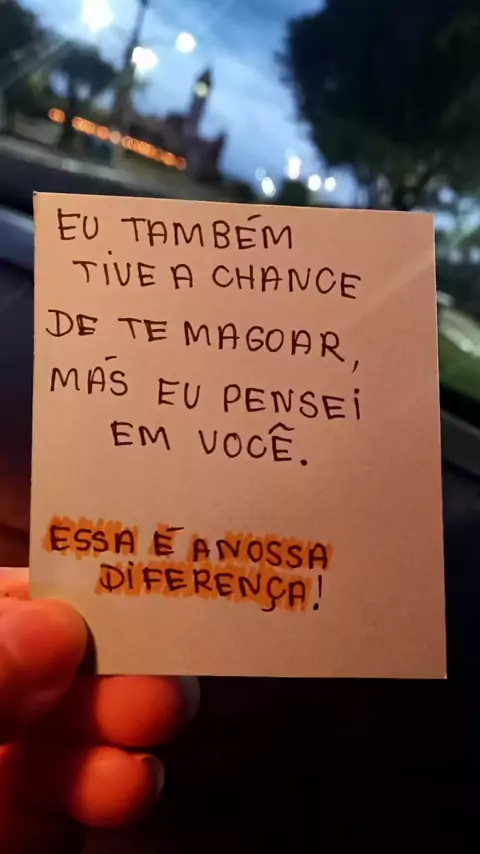 EU TAMBÉM
TIVE A CHANCE
DE TE MAGOAR,
MÁS EU PENSEI
EM VOCÊ.
ESSA É A NOSSA
DIFERENÇA!